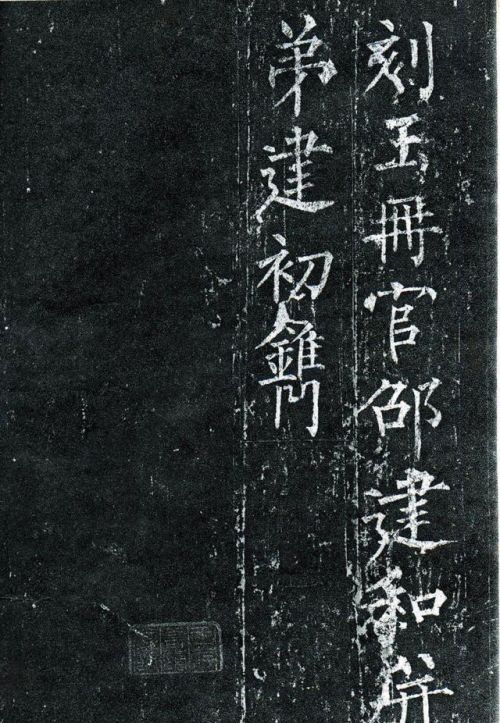 刻玉冊官邵建和併
弟建初鐫